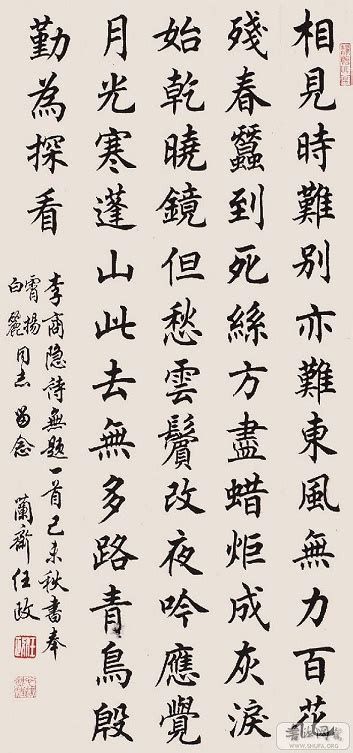 相見時難別亦難東風無力百花
殘春蠶到死絲方盡蜡炬成灰淚
始乾曉鏡但愁雲鬢改夜吟應覺
月光寒蓬山此去無多路青鳥殷
勤為探看
李商隐詩無題一首己未秋書奉
霄揚
白
同志留念 蘭齋任政
WWW.SHUFA.ORG